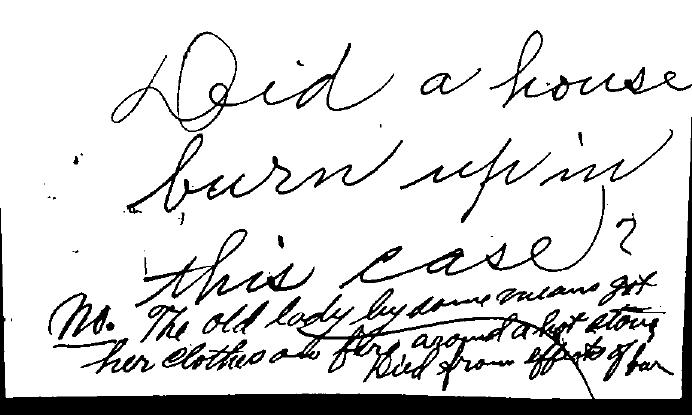 Did a house
burn up in
this case?
No. The old lady by some means got
her clothes on fire around a hot stove
Died from effects of bur